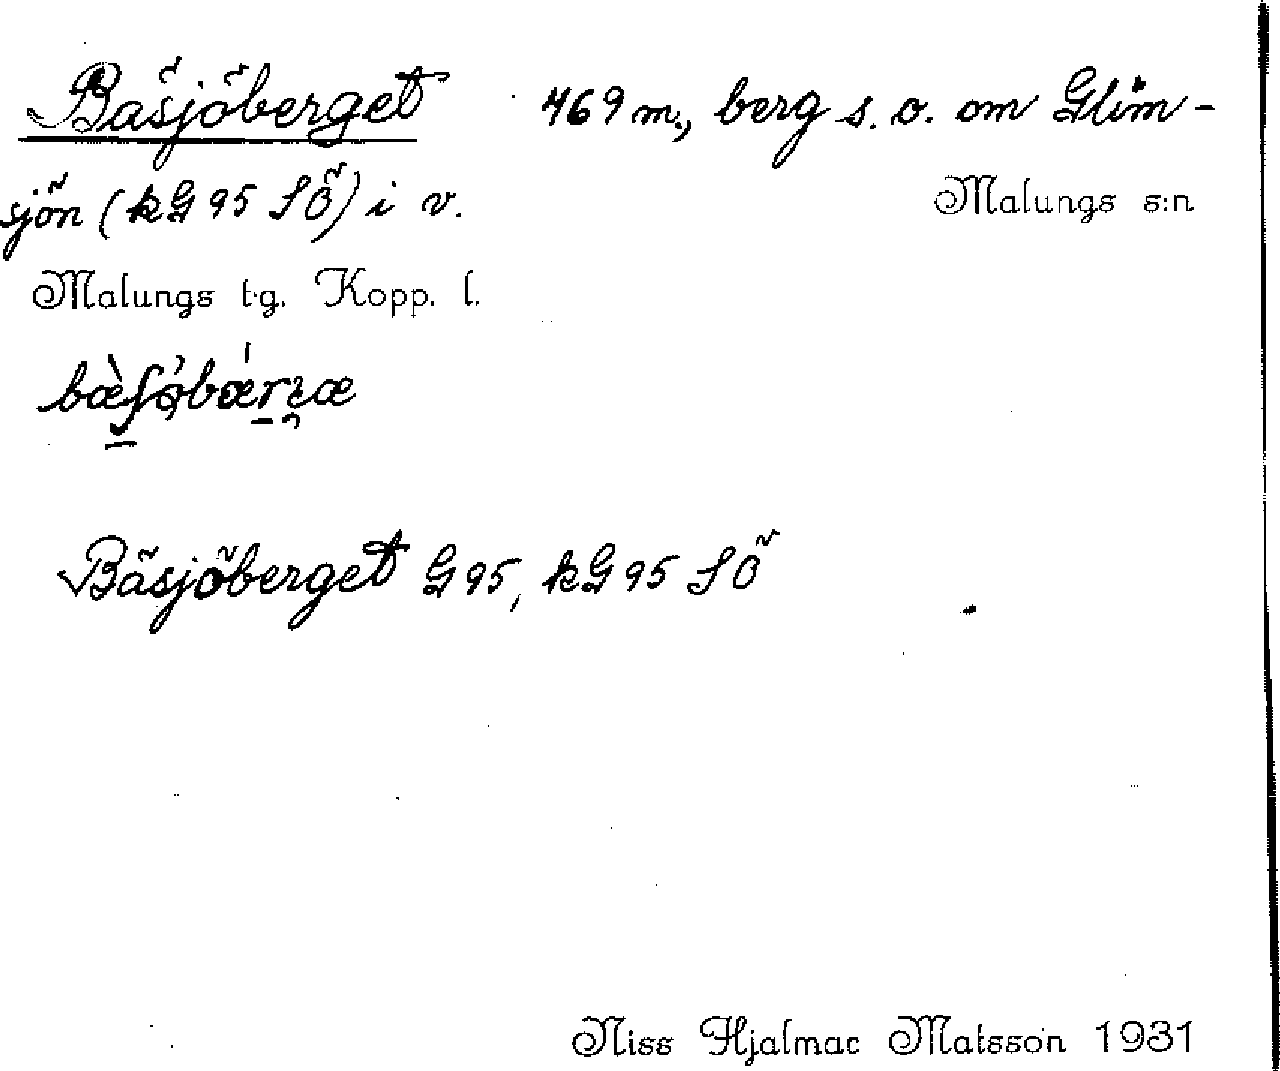 Bäsjöberget 469 m., berg s. o. om Glim-
sjön (kG 95 SÖ) i v.
Malungs s:n
Malungs tg. Kopp. l.
Bäsjöberget G 95, kG 95 SÖ
Niss Hjalmar Matsson 1931